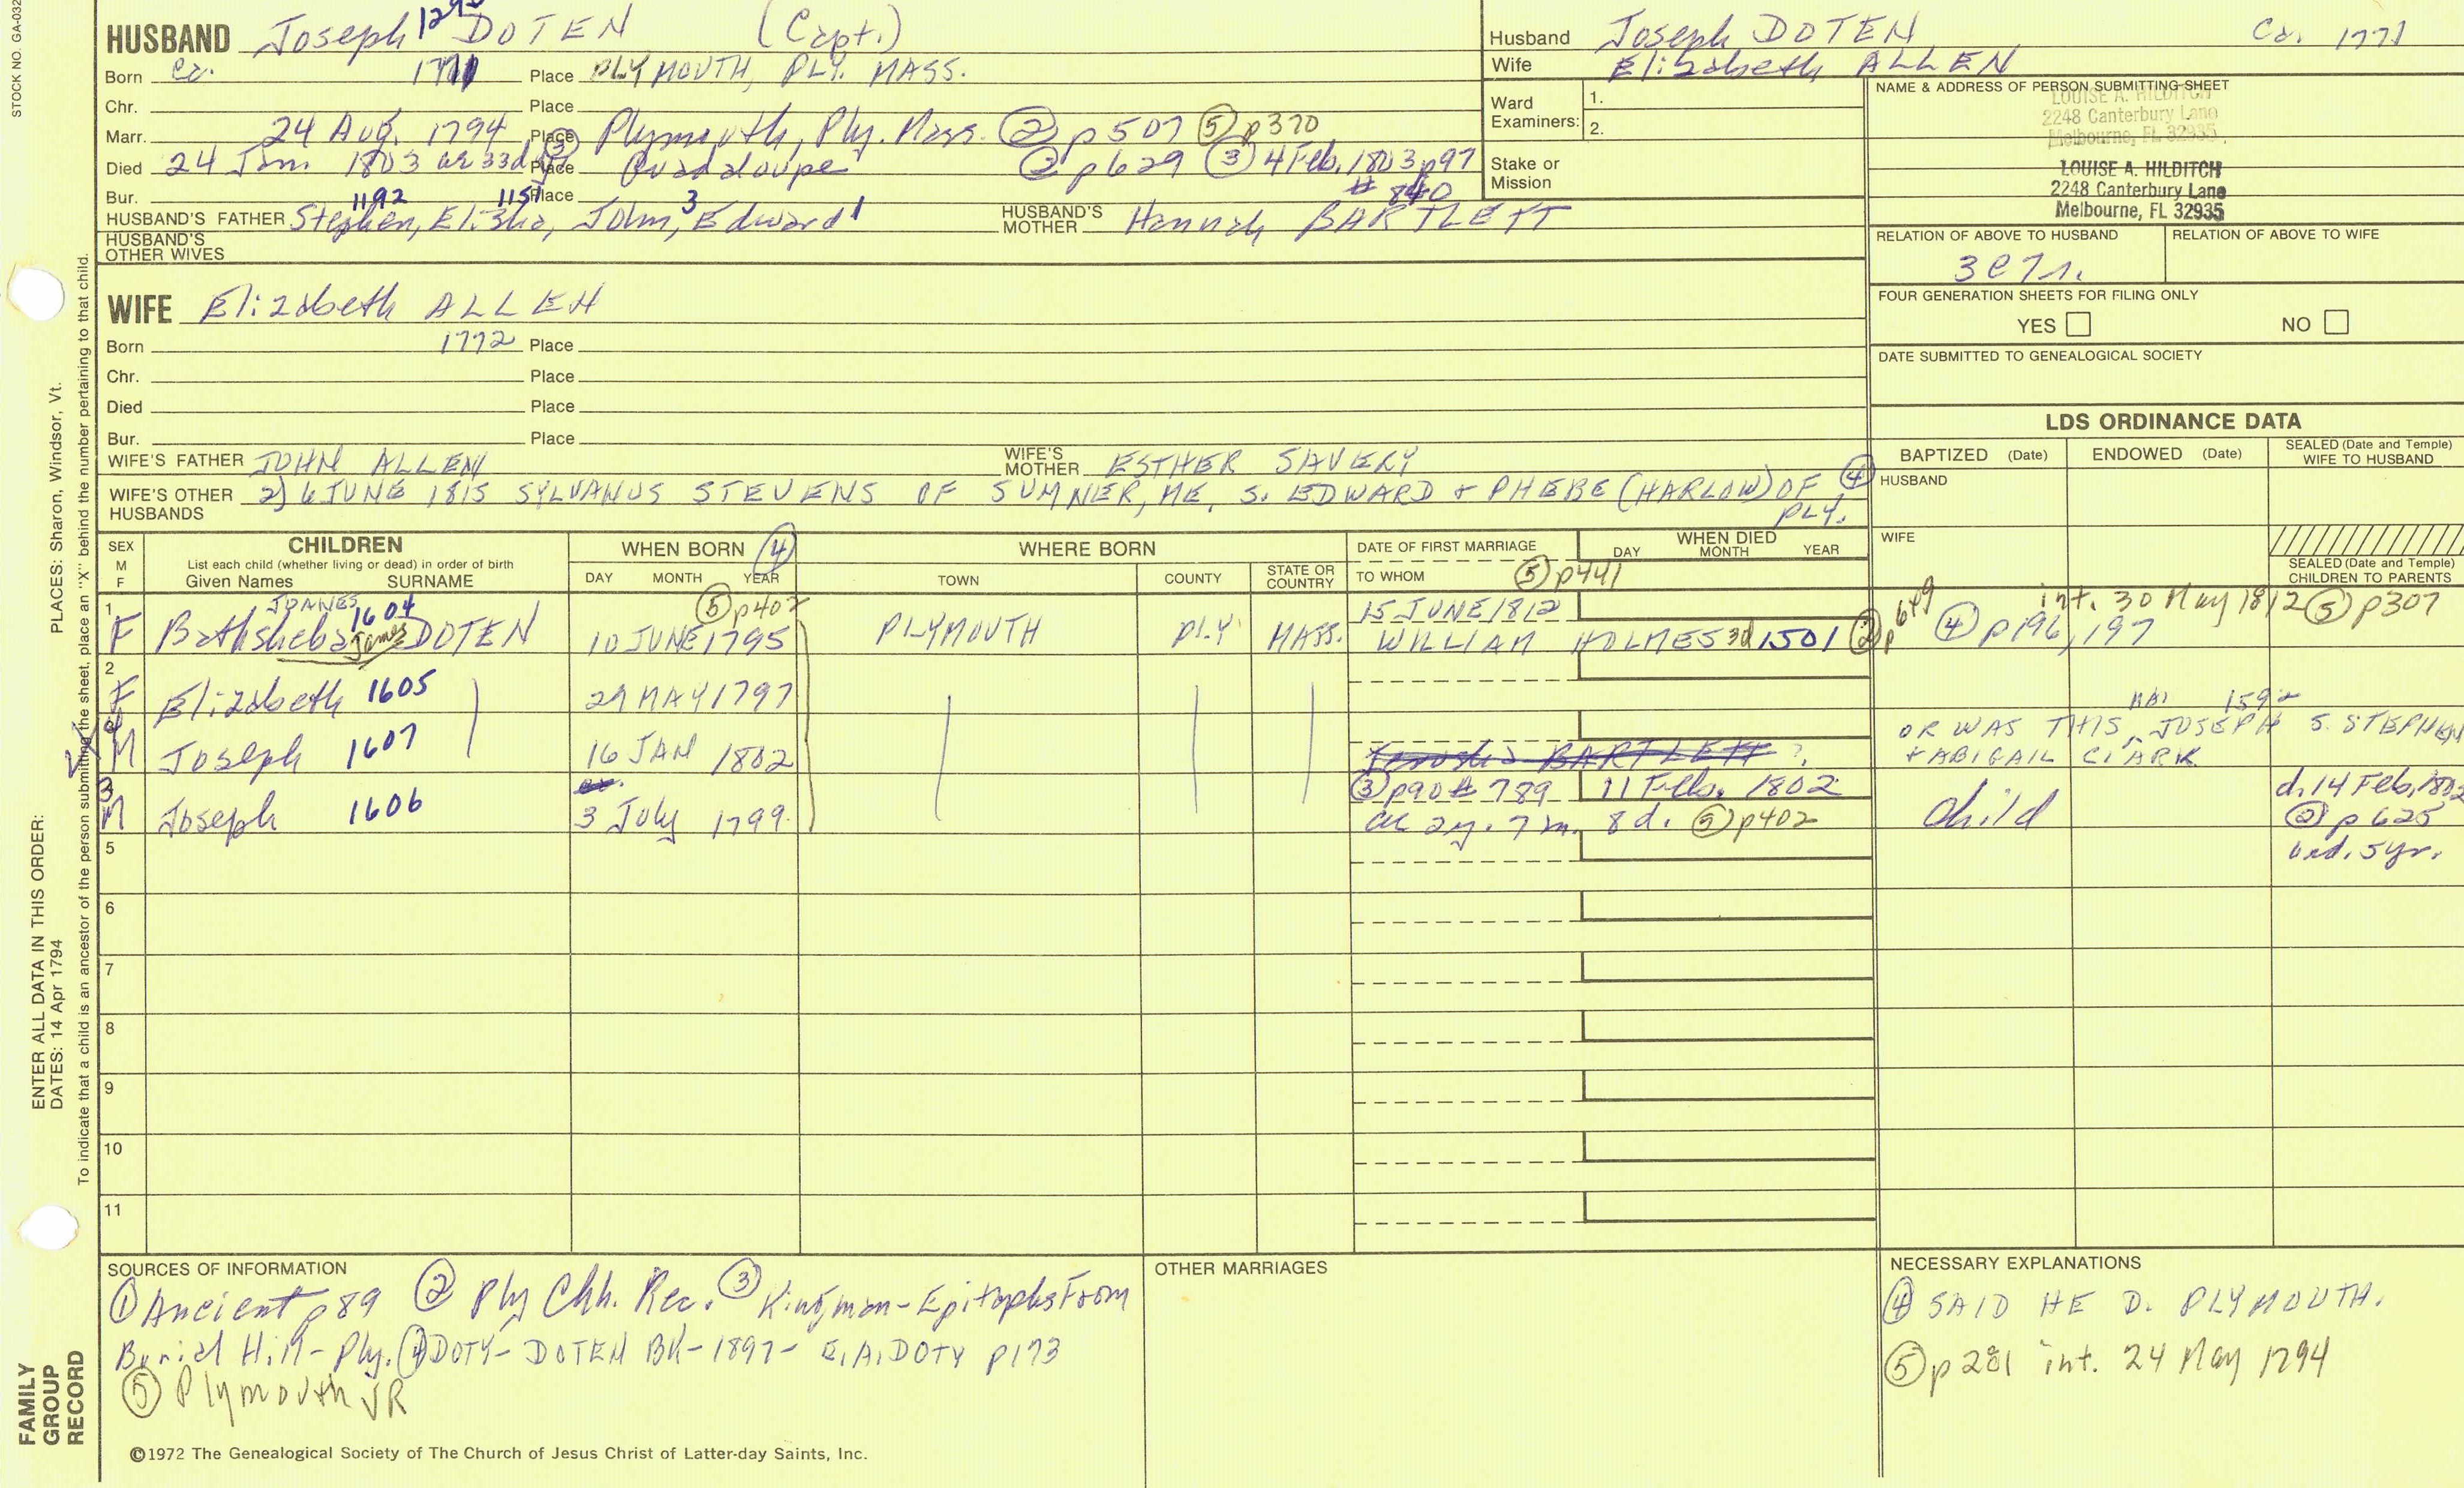 STOCK NO. GA-032
HUSBAND Joseph DOTEN (Capt.)
Born Ca. 1771 Place PLYMOUTH, PLY. MASS.
Chr. Place
Marr. 24 Aug. 1794 Place Plymouth, Ply. Mass. ② p507 ⑤ p370
Died 24 Jan. 1803 ae 33d y ③ Place Guadaloupe ② p629 ③ 4 Feb. 1803 p97
# 840
Bur. Place
1192 115
HUSBAND'S FATHER Stephen, Elisha, John,3 Edward1 HUSBAND'S MOTHER Hannah BARTLETT
HUSBAND'S OTHER WIVES
Husband Joseph DOTEN Ca. 1771
Wife Elizabeth ALLEN
Ward Examiners: 1.
2.
Stake or Mission
NAME & ADDRESS OF PERSON SUBMITTING SHEET
LOUISE A. HILDITCH
2248 Canterbury Lane
Melbourne, FL 32935
LOUISE A. HILDITCH
2248 Canterbury Lane
Melbourne, FL 32935
RELATION OF ABOVE TO HUSBAND RELATION OF ABOVE TO WIFE
FOUR GENERATION SHEETS FOR FILING ONLY
YES NO
DATE SUBMITTED TO GENEALOGICAL SOCIETY
WIFE Elizabeth ALLEN
Born 1772 Place
Chr. Place
Died Place
Bur. Place
WIFE'S FATHER JOHN ALLEN WIFE'S MOTHER ESTHER SAVERY
WIFE'S OTHER HUSBANDS 2) 6 JUNE 1815 SYLVANUS STEVENS OF SUMNER, ME, S. EDWARD + PHEBE (HARLOW) OF PLY. ④
LDS ORDINANCE DATA
BAPTIZED (Date) ENDOWED (Date) SEALED (Date and Temple) WIFE TO HUSBAND
HUSBAND
WIFE
SEALED (Date and Temple) CHILDREN TO PARENTS
SEX M F
CHILDREN
List each child (whether living or dead) in order of birth
Given Names SURNAME
WHEN BORN ④
DAY MONTH YEAR
WHERE BORN
TOWN COUNTY STATE OR COUNTRY
DATE OF FIRST MARRIAGE
TO WHOM ⑤ p441
WHEN DIED
DAY MONTH YEAR
1 JOANES 1604 ⑤ p402 15 JUNE 1812 int. 30 May 1812 ⑤ p307
F Bathsheba James DOTEN 10 JUNE 1795 PLYMOUTH PLY MASS. WILLIAM HOLMES 3d 1501 ② p 649 ④ p196, 197
2
F Elizabeth 1605 29 MAY 1797
4
M Joseph 1607 16 JAN 1802 BARTLETT ? OR WAS THIS JOSEPH S. STEPHEN
1592
+ ABIGAIL CLARK
3 ③ p90 # 789 11 Feb. 1802 d. 14 Feb, 1802
M Joseph 1606 3 July 1799 ae 2y. 7 m. 8 d. ⑤ p402 child ② p 625
und. 5yr.
5
6
7
8
9
10
11
SOURCES OF INFORMATION
① Ancient p89 ② Ply Chh. Rec. ③ Kingman - Epitaphs From
Burial Hill - Ply. ④ DOTY - DOTEN BK - 1897 - E. A. DOTY p173
⑤ Plymouth VR
OTHER MARRIAGES
NECESSARY EXPLANATIONS
④ SAID HE D. PLYMOUTH.
⑤ p281 int. 24 May 1794
©1972 The Genealogical Society of The Church of Jesus Christ of Latter-day Saints, Inc.
FAMILY
GROUP
RECORD
ENTER ALL DATA IN THIS ORDER:
DATES: 14 Apr 1794 PLACES: Sharon, Windsor, Vt.
To indicate that a child is an ancestor of the person submitting the sheet, place an "X" behind the number pertaining to that child.